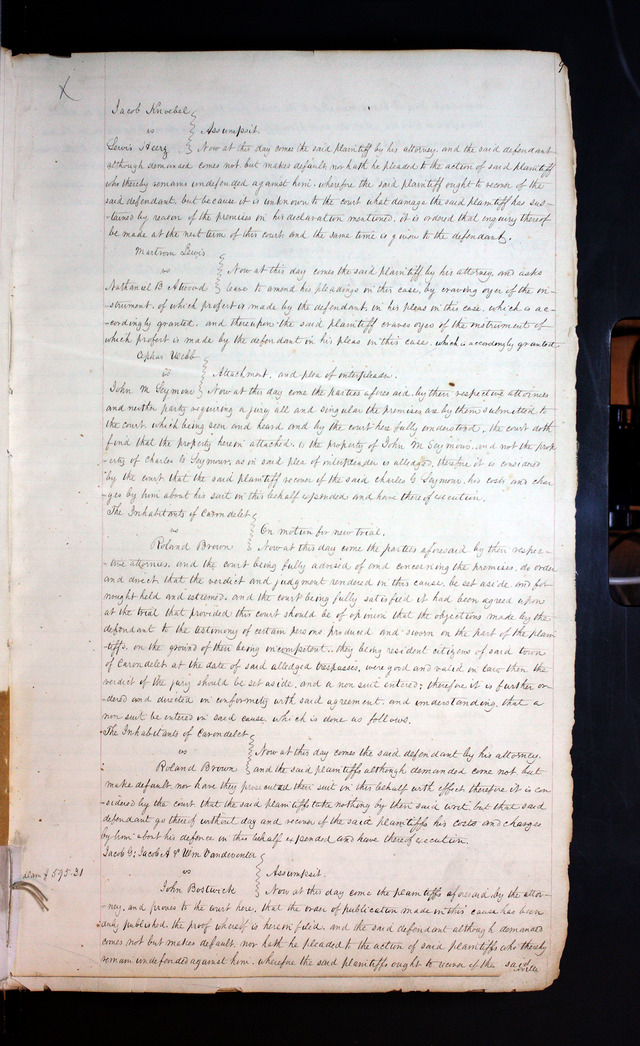 9
X
Jacob Knoebel
vs Assumpsit.
Lewis Herz Now at this day comes the said plaintiff by his attorney, and the said defendant
although demanded comes not but makes default, nor hath he pleaded to the action of said plaintiff
who thereby remains undefended against him. wherefore the said plaintiff ought to recover of the
said defendant, but because it is unknown to the court what damage the said plaintiff has sus-
-tained by reason of the premises in his declaration mentioned, it is ordered that enquiry thereof
be made at the next term of this court and the same time is given to the defendant.
Martrom Lewis
vs Now at this day comes the said plaintiff by his attorney, and asks
Nathaniel B Atwood leave to amend his pleadings in this case, by craving oyer of the in-
-strument, of which profert is made by the defendant, in his pleas in this case, which is ac-
-cordingly granted, and thereupon the said plaintiff craves oyer of the instrument of
which profert is made by the defendant in his pleas in this case. which is accordingly granted.
Cephas Webb
vs Attachment, and plea of interpleader.
John M Seymour Now at this day come the parties aforesaid, by their respective attornies
and neither party requiring a jury all and singular the premises are by them submitted to
the court, which being seen and heard and by the court here fully understood, the court doth
find that the property herein attached is the property of John M Seymour, and not the prop-
-erty of Charles G Seymour, as in said plea of interpleader is alleaged, therefore it is considered
by the court that the said plaintiff recover of the said Charles G Seymour, his costs and char-
-ges by him about his suit in this behalf expended and have thereof execution.
The Inhabitants of Carondelet
vs On motion for new trial.
Roland Brown Now at this day come the parties aforesaid by their respec-
-tive attornies, and the court being fully advised of and concerning the premises, do order
and direct, that the verdict and judgment rendered in this cause, be set aside, and for
nought held and esteemed, and the court being fully satisfied it had been agreed upon
at the trial that provided this court should be of opinion that the objections made by the
defendant to the testimony of certain persons produced and sworn on the part of the plain-
-tiffs, on the ground of their being incompetent, they being resident citizens of said town
of Carondelet at the date of said alledged trespasses, were good and valid in law then the
verdict of the jury should be set aside, and a non suit entered; therefore it is further or-
-dered and directed in conformity with said agreement, and understanding, that a
non suit be entered in said cause, which is done as follows.
The Inhabitants of Carondelet
vs Now at this day comes the said defendant by his attorney,
Roland Brown and the said plaintiffs although demanded come not but
make default nor have they prosecuted their suit in this behalf with effect therefore it is con-
-sidered by the court that the said plaintiffs take nothing by their said writ, but that said
defendant go thereof without day and recover of the said plaintiffs his costs and charges
by him about his defence in this behalf expended and have thereof execution.
Jacob G; Jacob A & Wm Vandeventer
dam $595.31
vs Assumpsit.
John Bostwick Now at this day come the plaintiffs aforesaid, by the attor-
-ney, and proves to the court here, that the order of publication made in this cause has been
duly published, the proof whereof is herein filed, and the said defendant although demanded
comes not but makes default, nor hath he pleaded to the action of said plaintiffs who thereby
remain undefended against him, wherefore the said plaintiffs ought to recover of the said